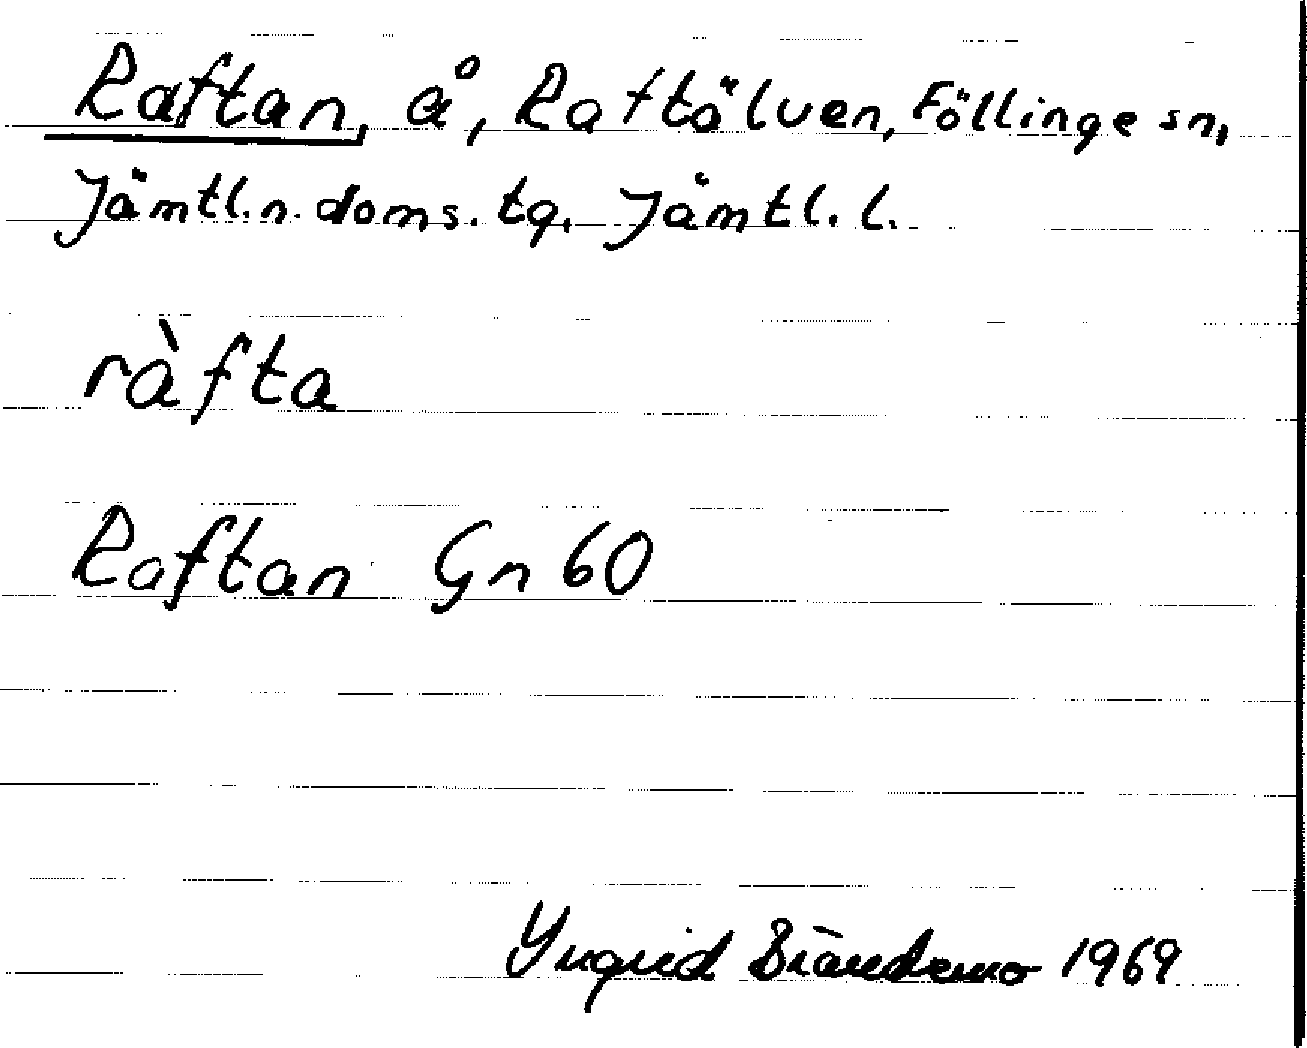 Raftan, å, Raftälven, Föllinge sn,
Jämtl.n. doms. tg. Jämtl. l.
ràfta
Raftan Gn 60
Yngrid Brändemo 1969